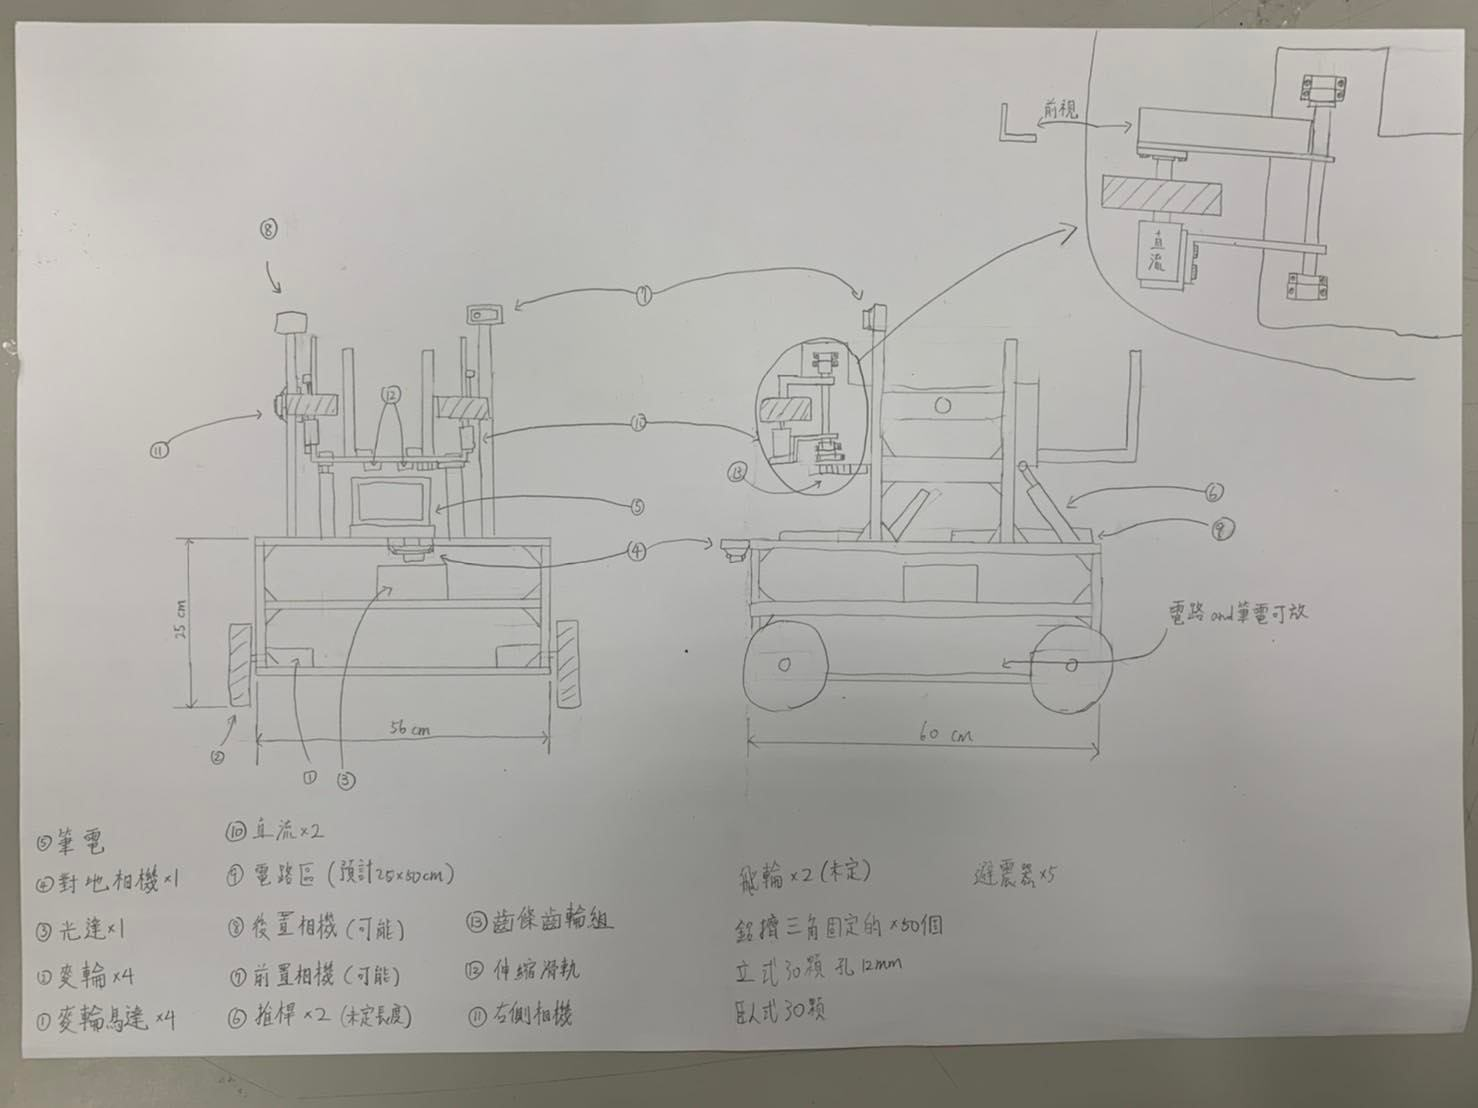 前視
直流
⑧
⑦
⑫
⑪
⑩
⑬
⑤
⑥
④
⑨
25 cm
電路and筆電可放
56 cm
60 cm
②
①
③
⑤筆電
④對地相機×1
③光達×1
②麥輪×4
①麥輪馬達×4
⑩直流×2
⑨電路區(預計25×50cm)
⑧後置相機(可能)
⑦前置相機(可能)
⑥推桿×2(未定長度)
⑬齒條齒輪組
⑫伸縮滑軌
⑪右側相機
飛輪×2(未定)
鋁擠三角固定的×50個
立式30顆 孔12mm
臥式30顆
避震器×5